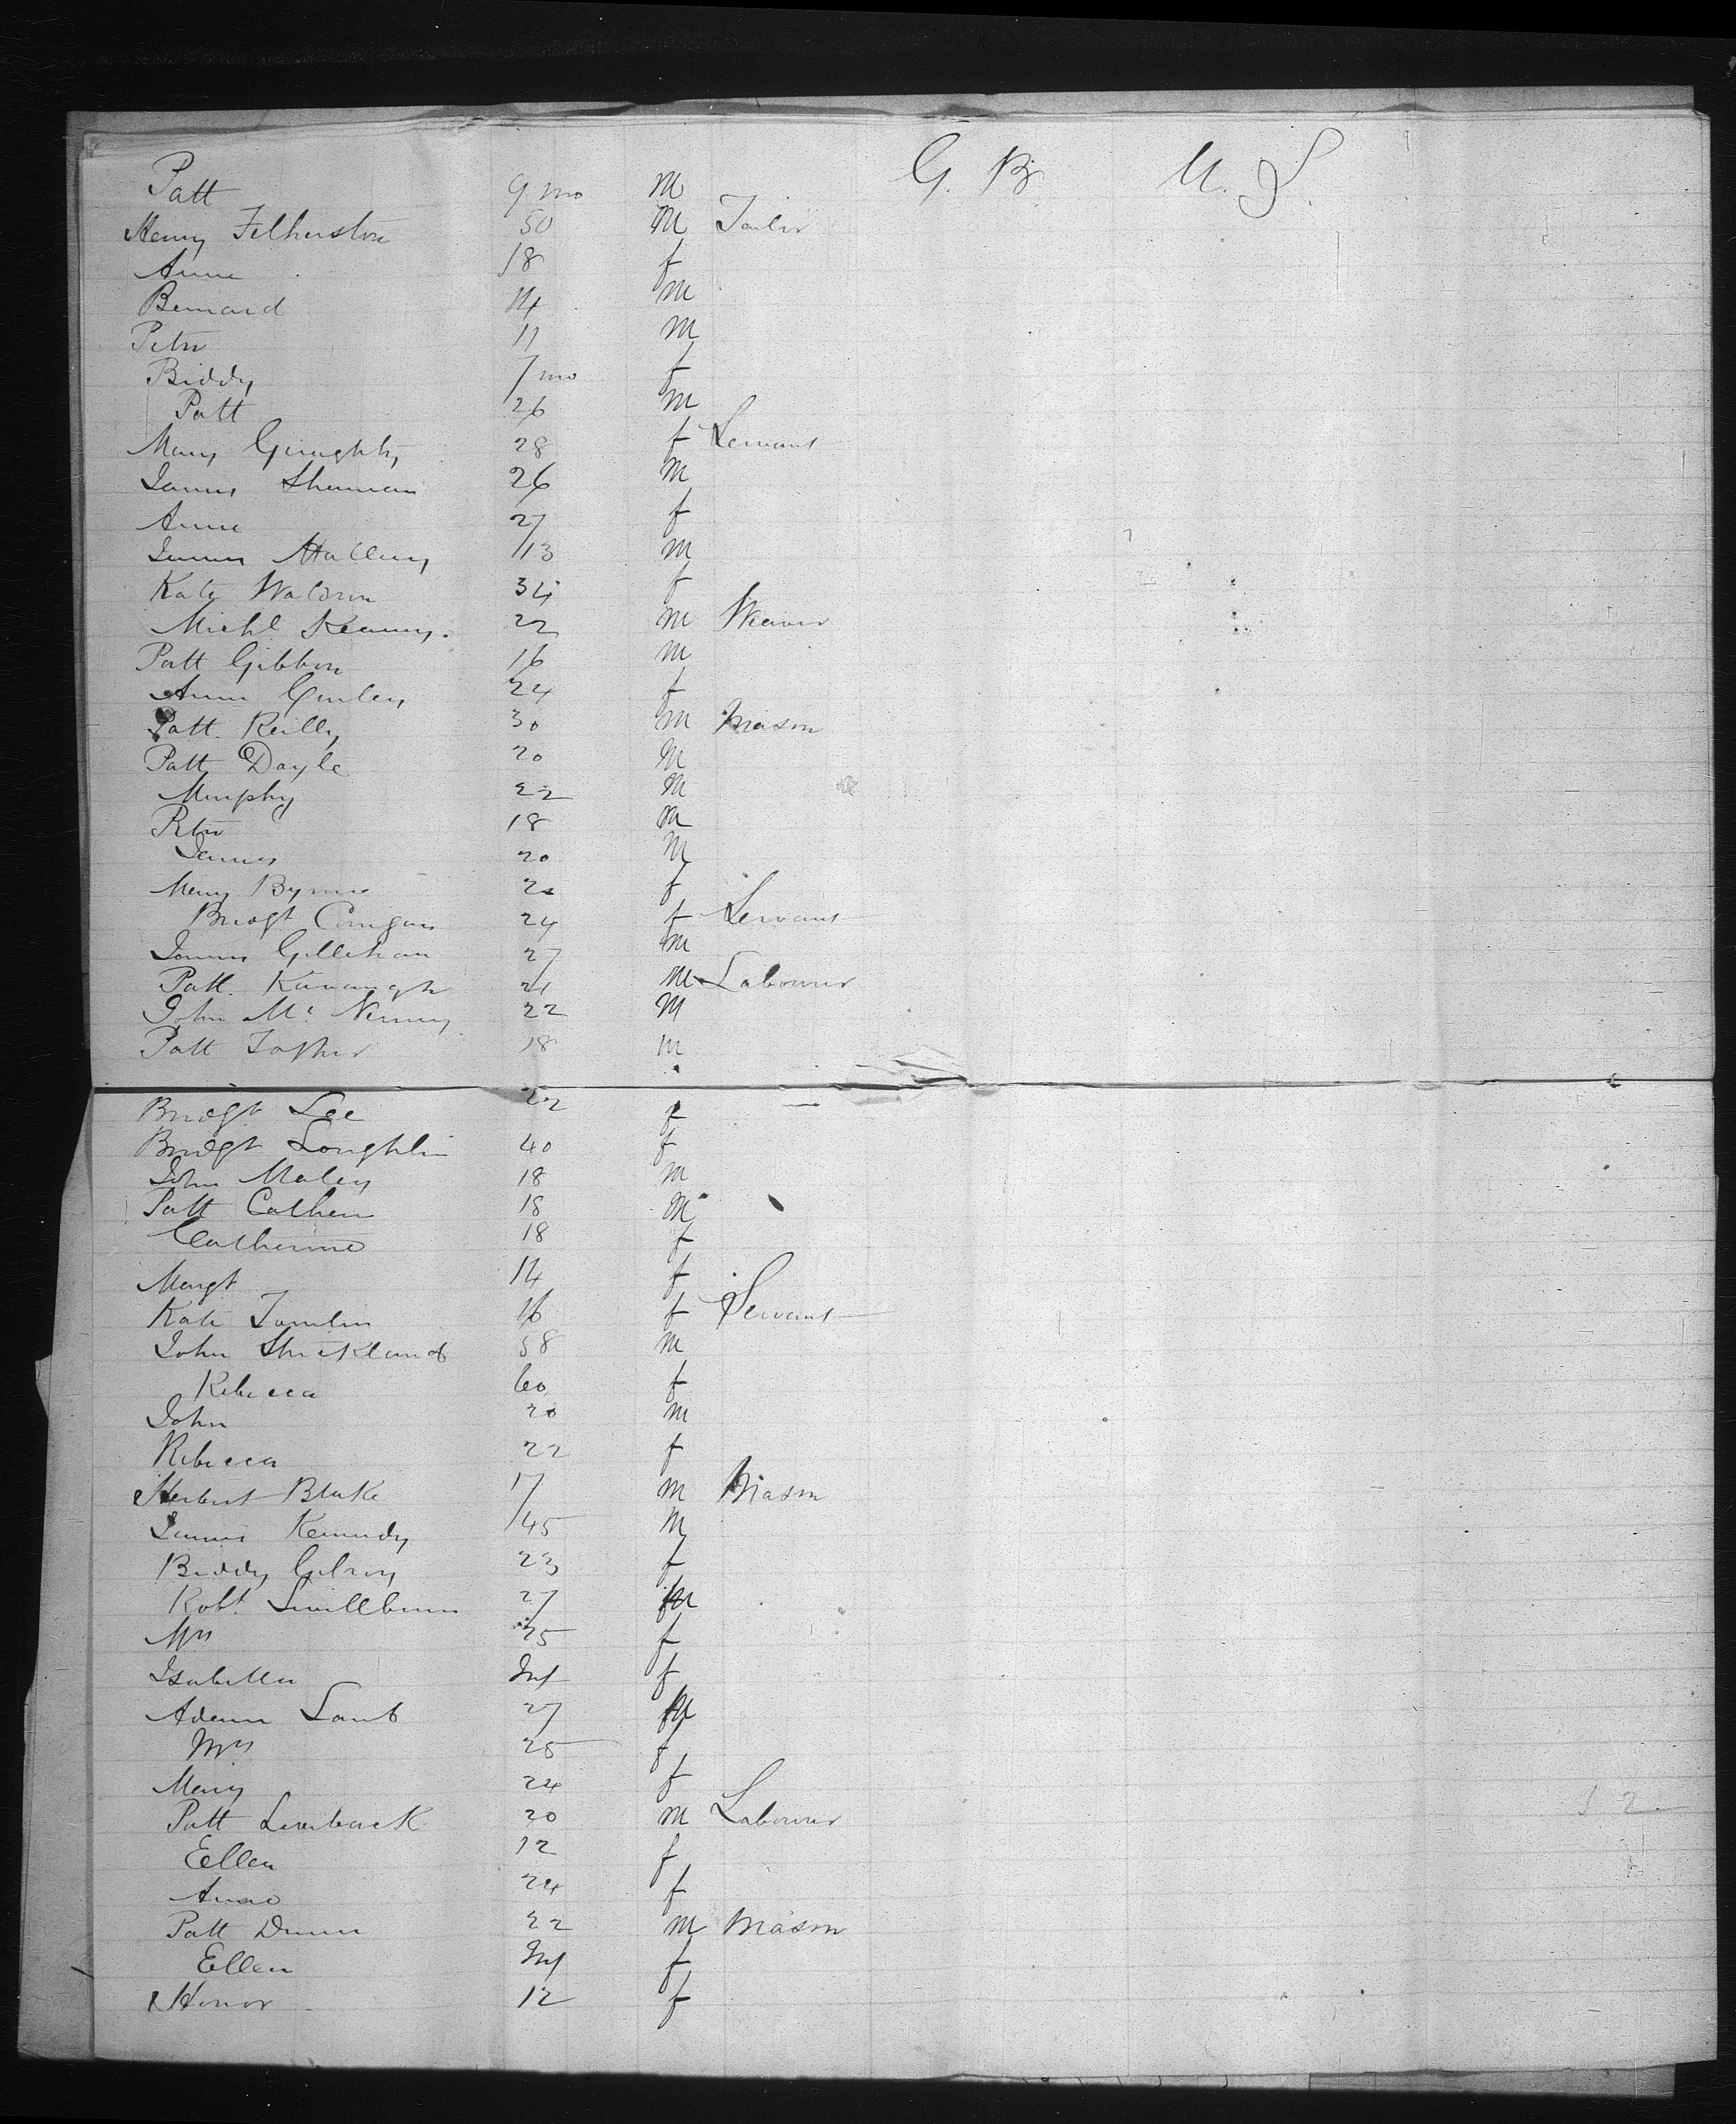 Patt 9 mo M G. B U. S.
Henry Fetherston 50 M Tailor
Anne 18 f
Bernard 14 M
Peter 11 M
Biddy 7 mo f
Patt 26 M
Mary Giraghty 28 f Servant
James Shannan 26 M
Anne 27 f
James Hallary 13 M
Kate Waldron 34 f
Michl Keaveny. 22 M Weaver
Patt Gibbon 16 M
Anne Gurley 24 f
Patt. Reilly 30 M Mason
Patt Doyle 20 M
Murphy 22 M
Peter 18 M
James 20 M
Mary Byrne 20 f
Bridgt Corrigan 24 f Servant
James Gillehan 27 M
Patt. Kavanagh 21 M Labourer
John Mc Nerney 22 M
Patt 18 M
Bridgt Lee 22 f
Bridgt Loughlin 40 f
John Maley 18 M
Patt Cathen 18 M
Catherine 18 f
Margt 14 f
Kate Tomlin 16 f Servant
John Strickland 58 M
Rebecca 60 f
John 20 M
Rebecca 22 f
Herbert Blake 17 M Mason
James Kennedy 45 M
Biddy Gilroy 23 f
Robt. Swillburn 27 M
Mrs 25 f
Isabella Inf f
Adam Lamb 27 M
Mrs 25 f
Mary 24 f
Patt 20 M Labourer 52
Ellen 12 f
Anne 24 f
Patt Dunn 22 M Mason
Ellen Inf f
Honor 12 f